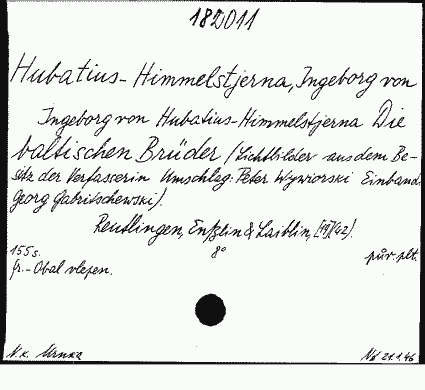 182011
Hubatius-Himmelstjerna, Ingeborg von
Ingeborg von Hubatius-Himmelstjerna Die
baltischen Brüder (Lichtbilder aus dem Be-
sitz der Verfasserin Umschlag: Peter Wywiorski Einband:
Georg Gabritschewski).
Reutlingen, Enßlin & Laiblin, [19](42).
155 s. 8° pův. plt.
fr.-Obal vlepen.
N. k. Nd 21.1.46